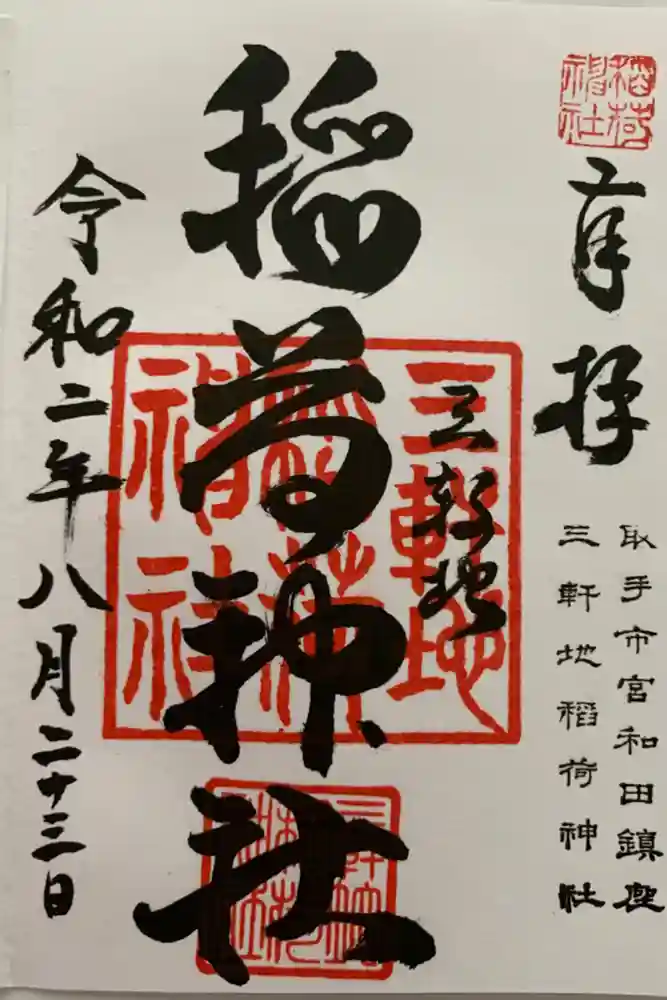 稲荷神社
奉拝
取手市宮和田鎮座
三軒地稲荷神社
三軒地
稲荷神社
三軒地稲荷神社
令和二年八月二十三日